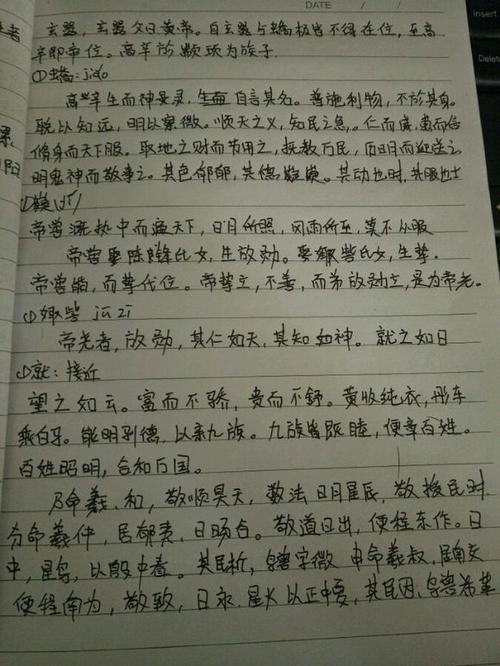 DATE
Delete
玄嚣，玄嚣父曰黄帝。自玄嚣与蟜极皆不得在位，至高
辛即帝位。高辛於颛顼为族子。
①蟜：jiǎo
高辛生而神灵，自言其名。普施利物，不於其身。
聪以知远，明以察微。顺天之义，知民之急。仁而威，惠而信
脩身而天下服。取地之财而节用之，抚教万民，历日月而迎送之
明鬼神而敬事之。其色郁郁，其德嶷嶷。其动也时，其服也士
帝喾溉执中而遍天下，日月所照，风雨所至，莫不从服
帝喾娶陈锋氏女，生放勋。娶娵訾氏女，生挚。
帝喾崩，而挚代位。帝挚立，不善，而弟放勋立，是为帝尧。
①娵訾 jū zī
帝尧者，放勋，其仁如天，其知如神。就之如日
①就：接近
望之如云。富而不骄，贵而不舒。黄收纯衣，彤车
乘白马。能明驯德，以亲九族。九族皆既睦，便章百姓。
百姓昭明，合和万国。
乃命羲、和，敬顺昊天，数法日月星辰，敬授民时
分命羲仲，居郁夷，曰旸谷。敬道日出，便程东作。日
中，星鸟，以殷中春。其民析，鸟兽字微 申命羲叔，居南交
便程南为，敬致，日永，星火 以正中夏，其民因，鸟兽希革